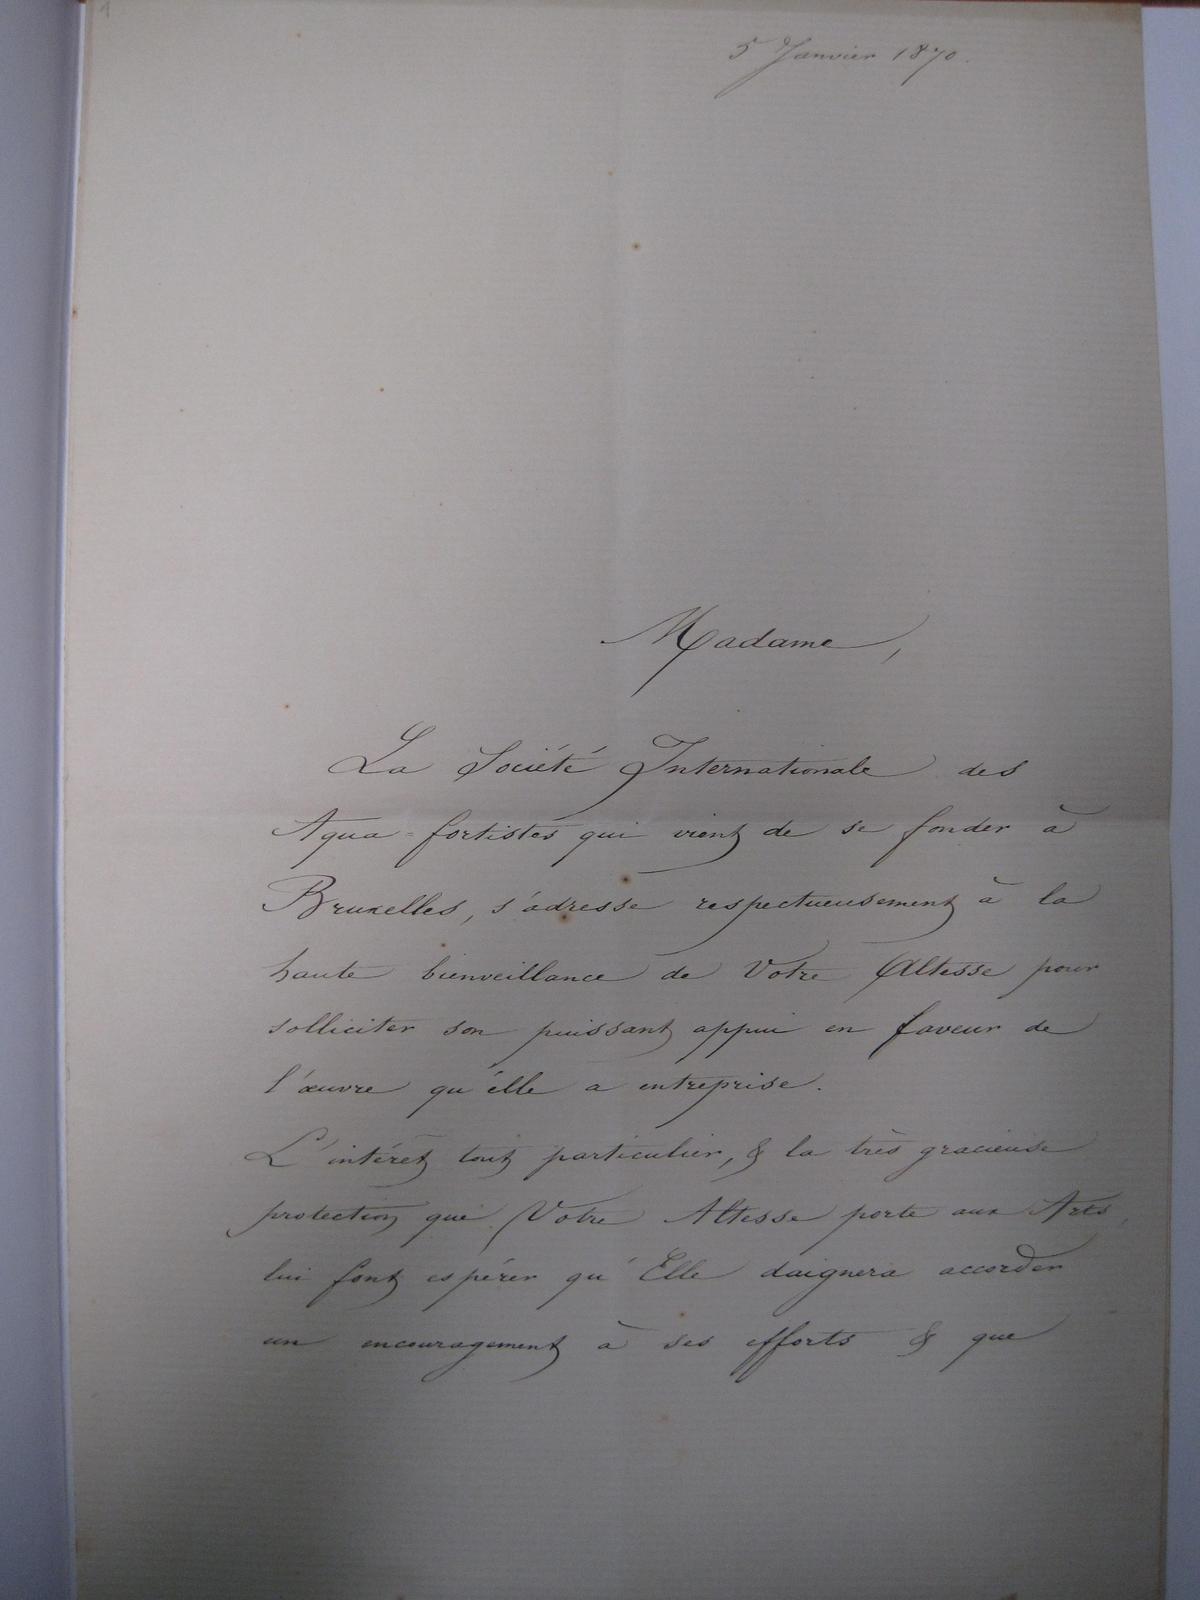 1
5 Janvier 1870.
Madame,
La Société Internationale des
Aqua=fortistes qui vient de se fonder à
Bruxelles, s'adresse respectueusement à la
haute bienveillance de Votre Altesse pour
solliciter son puissant appui en faveur de
l'œuvre qu'elle a entreprise.
L'intérêt tout particulier, & la très gracieuse
protection que Votre Altesse porte aux Arts,
lui font espérer qu'Elle daignera accorder
un encouragement à ses efforts & que